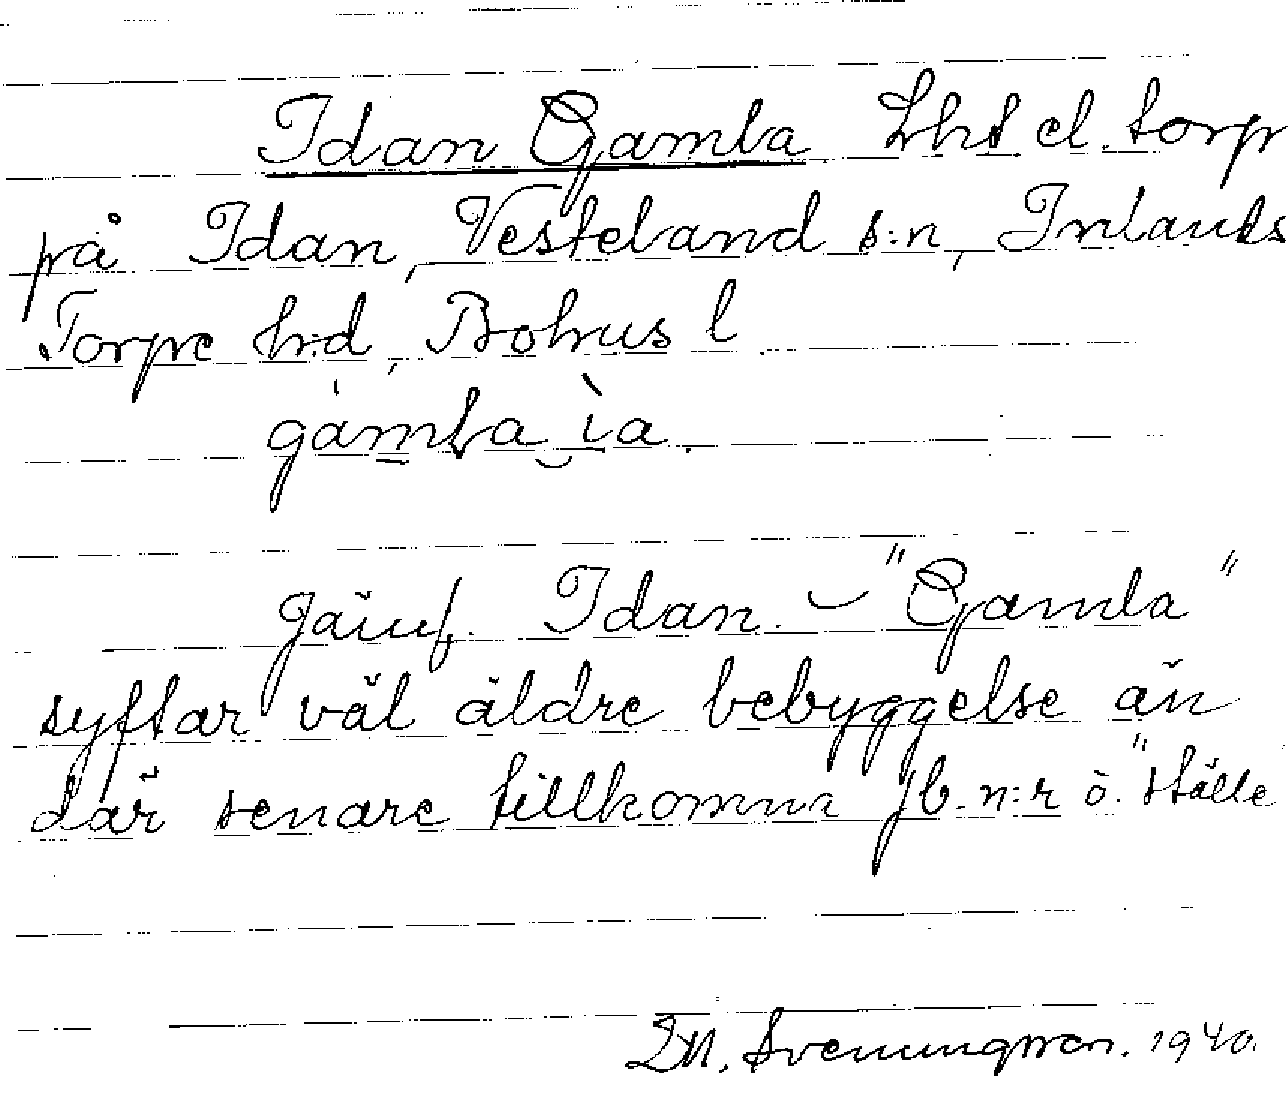 Idan Gamla Lht el. torp
på Idan, Vesteland s:n, Inlands
Torpe h:d, Bohus l
gamla ìa.
Jämf. Idan. – "Gamla"
syftar väl äldre bebyggelse än
där senare tillkomna jb.n:r o. "ställe
D.M. Svenningsson. 1940.